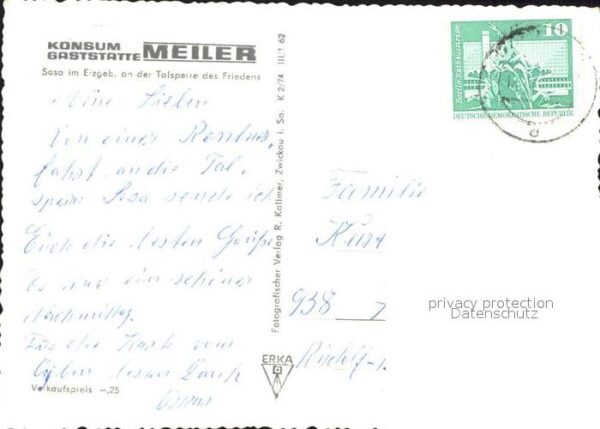 KONSUM
GASTSTÄTTE MEILER
Sosa im Erzgeb. an der Talsperre des Friedens
Meine Lieben
Von einer Rentner
fahrt an die Tal-
sperre Sosa sende ich
Euch die besten Grüße
Es war ein schöner
Nachmittag.
Für die Karte vom
besten Dank
Verkaufspreis -,25
Fotografischer Verlag R. Kallmer, Zwickau i. Sa. K 2/74 III/1 62
ERKA
10
Berlin, Rathausstraße
DEUTSCHE DEMOKRATISCHE REPUBLIK
Familie
Kurt
938
privacy protection
Datenschutz